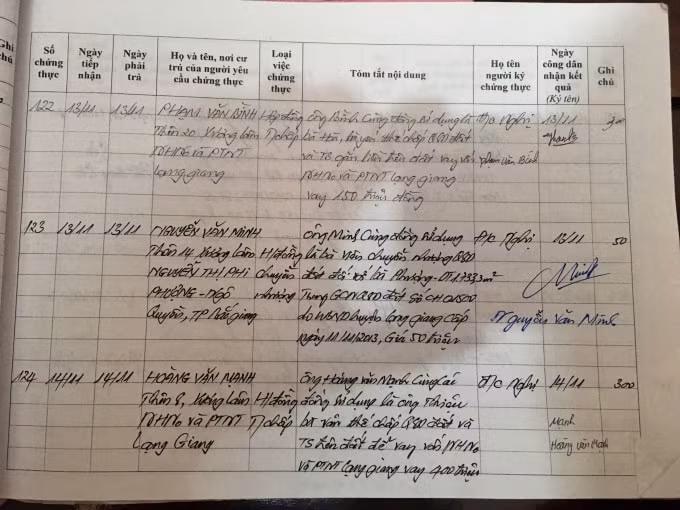 Ghi
chú
Số
chứng
thực
Ngày
tiếp
nhận
Ngày
phải
trả
Họ và tên, nơi cư
trú của người yêu
cầu chứng thực
Loại
việc
chứng
thực
Tóm tắt nội dung
Họ tên
người ký
chứng thực
Ngày
công dân
nhận kết
quả
(Ký tên)
Ghi
chú
122 13/11 13/11 PHẠM VĂN BÌNH
Thôn 20 Xương Lâm
NHNo và PTNT
Lạng giang
H/đồng
T/chấp
ông Bình Cùng đồng sử dụng là
bà thế chấp QSD đất
và TS gắn liền trên đất vay vốn
NHNo và PTNT Lạng giang
vay 150 triệu đồng
Đ/c Nghị
13/11
Phạm Văn Bình
123 13/11 13/11 NGUYỄN VĂN MINH
Thôn 14 Xương Lâm
NGUYỄN THỊ PHI
PHƯỢNG - NGÔ
Quyền, TP Bắc giang
H/đồng
chuyển
nhượng
ông Minh Cùng đồng sử dụng
là bà Vân chuyển nhượng QSD
đất
Trong GCNQSD đất số
do UBND huyện Lạng giang cấp
ngày 11/11/2013, Giá 50 triệu
Đ/c Nghị
13/11
Minh
Nguyễn Văn Minh
50
124 14/11 14/11 HOÀNG VĂN MẠNH
Thôn 8, Xương Lâm
NHNo và PTNT
Lạng Giang
H/đồng
T/chấp
ông Hoàng Văn Mạnh Cùng các
đồng sử dụng là ông Thiều
bà Vân thế chấp QSD đất và
TS trên đất để vay vốn NHNo
và PTNT Lạng giang vay 400 triệu
Đ/c Nghị
14/11
Mạnh
Hoàng Văn Mạnh
300